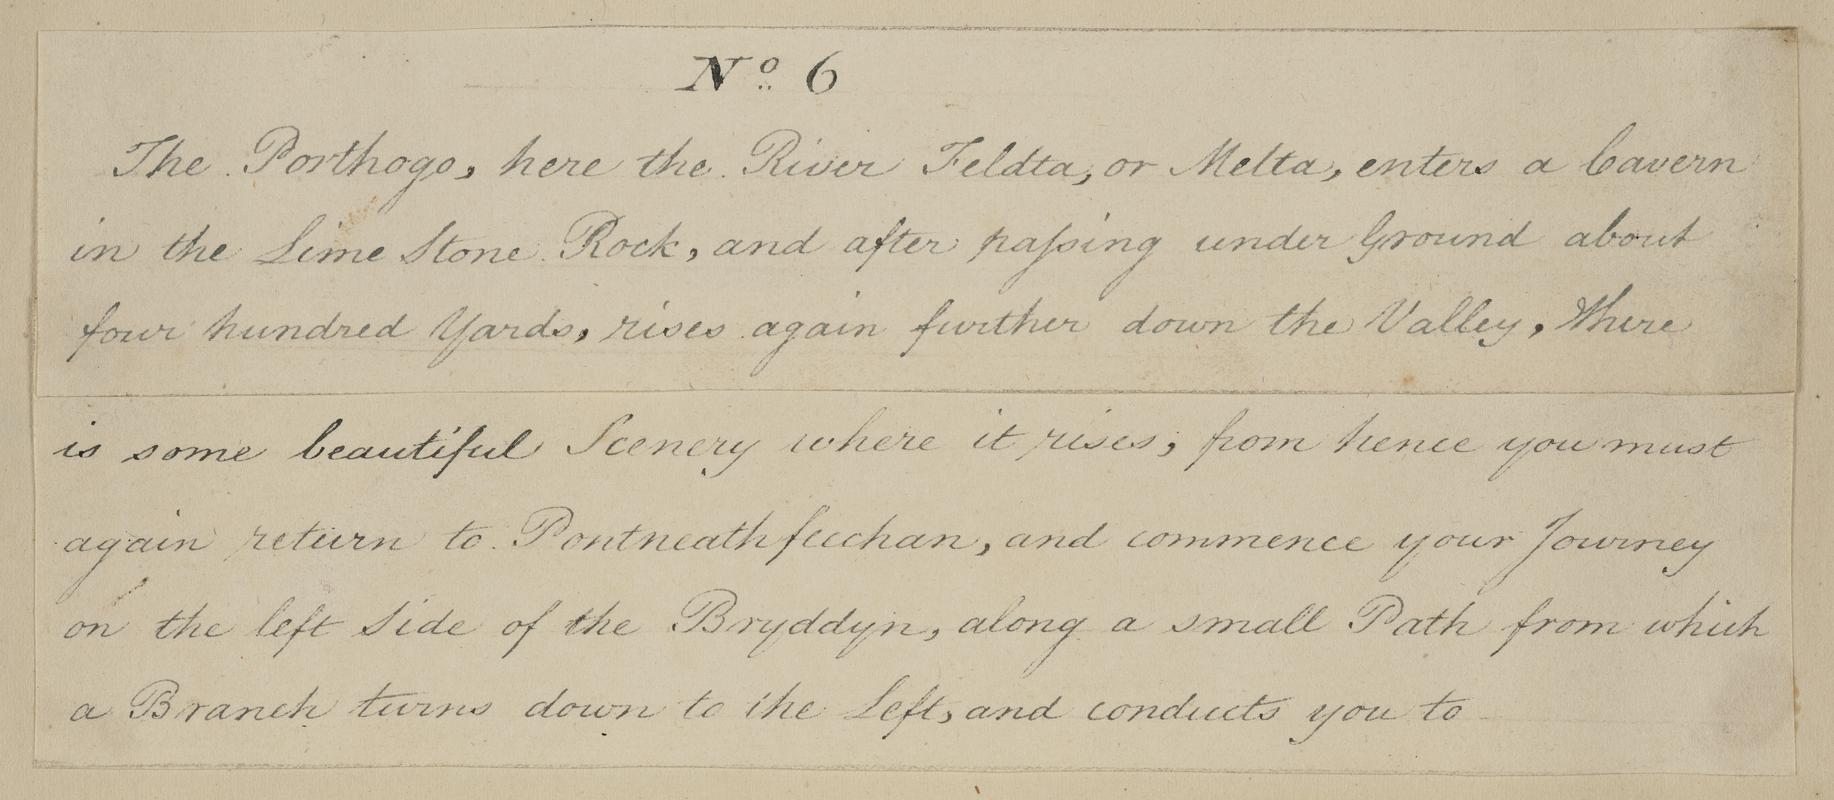 No. 6
The Porthogo, here the River Feldta, or Melta, enters a Cavern
in the Lime Stone Rock, and after passing under Ground about
four hundred Yards, rises again further down the Valley, There
is some beautiful Scenery where it rises; from hence you must
again return to Pontneathfeechan, and commence your Journey
on the left Side of the Bryddyn, along a small Path from which
a Branch turns down to the Left, and conducts you to